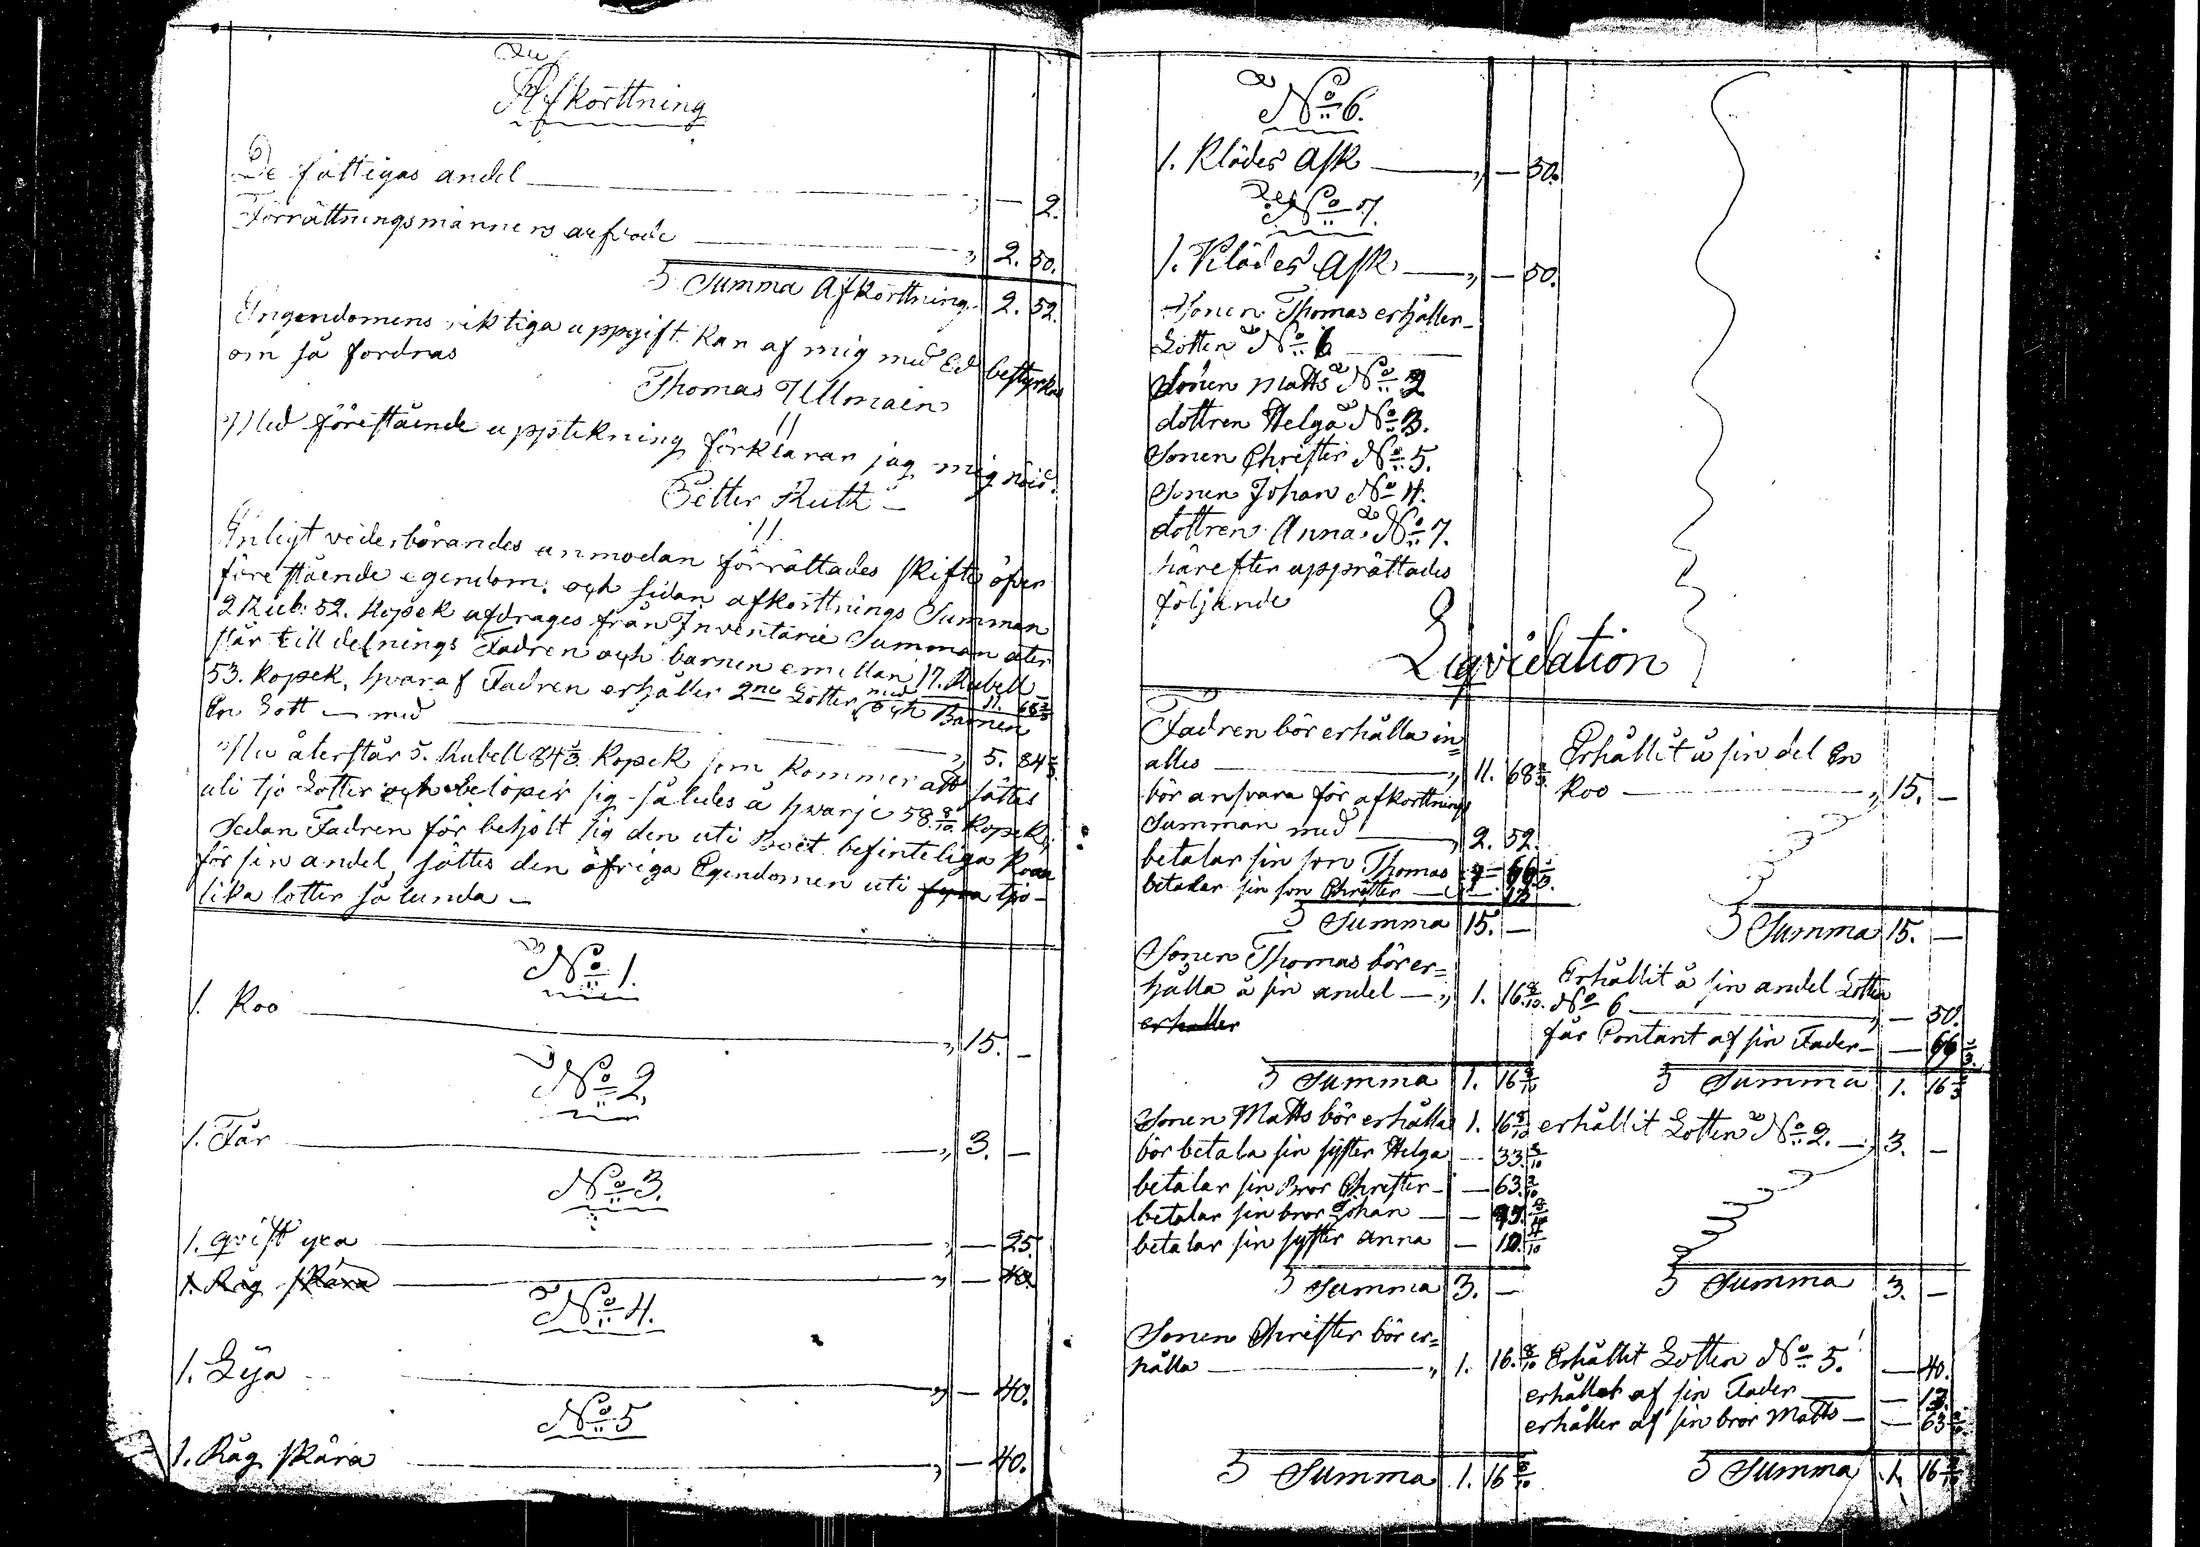 Afkorttning
De fattigas andel — „ — 2.
Förrättningsmännens arfvode — „ 2. 50.
Summa Afkorttning 2. 52.
Engendomens riktiga uppgift kan af mig med Ed bestyrkas
om så fordras
Thomas Ullmain
Med föreståénde uppteckning förklarar jag mig nöid.
Petter Ruth
Enligt vederbörandes anmodan förrättades skifte öfver
föreståénde egendom: och sidan afkorttnings Summan
2 Rub: 52. Kopek afdrages från Inventarie Summan åter
står till delnings Fadren och barnen emellan 17. Rubell
53. Kopek, hvaraf Fadren erhåller 2ne Lotter med 11. 68 2/3
och Barnen
En Lott — med — „ 5. 84 1/3
Nu återstår 5. Rubell 84 1/3 Kopek som kommer att sättas
uti tjo Lotter och belöper sig således å hwarje 58 8/10 Kopek,
Sedan Fadren för behjolt sig den uti Boet befinteliga Koan
för sin andel, sättes den öfriga Egendomen uti fyra tjo
lika lotter sålunda —
No 1.
1. Koo — „ 15. —
No 2.
1. Får — „ 3. —
No 3.
1. qvist yxa — „ — 25.
1. Råg skära — „ — 40.
No 4.
1. Lija — „ — 40.
No 5
1. Råg skära — „ — 40.
No 6.
1. Klädes Ask — „ — 50.
No 7.
1. Klädes Ask — „ — 50.
Sonen Thomas erhåller
Lotten No 6
Sonen Matts No 2
dottren Helga No 3.
Sonen Christer No 5.
Sonen Johan No 4.
dottren Anna No 7.
härefter upprättades
följande
Liqvidation
Fadren bör erhålla in=
alles — „ 11. 68 2/3
bör ansvara för afkorttnings
Summan med — 2. 52.
betalar sin son Thomas — 66 1/3
betalar sin son Christer — 13
Summa 15. —
Erhållit å sin del En
Koo — „ 15. —
Summa 15. —
Sonen Thomas bör er=
hålla å sin andel — „ 1. 16 8/10.
erhaller
Summa 1. 16 8/10
Erhållit å sin andel Lotten
No 6 — „ — 50.
får Contant af sin Fader — — 66 1/3.
Summa 1. 16 1/3
Sonen Matts bör erhålla 1. 16 8/10
bör betala sin syster Helga — 33 8/10
betalar sin Bror Christer — — 63 2/10
betalar sin bror Johan — —
betalar sin syster Anna —
Summa 3. —
erhållit Lotten No 2. — 3. —
Summa 3. —
Sonen Christer bör er=
hålla — „ 1. 16. 8/10
Summa 1. 16 8/10
Erhållit Lotten No 5. — 40.
erhållet af sin Fader — — 13.
erhåller af sin bror Matts — — 63
Summa 1. 16